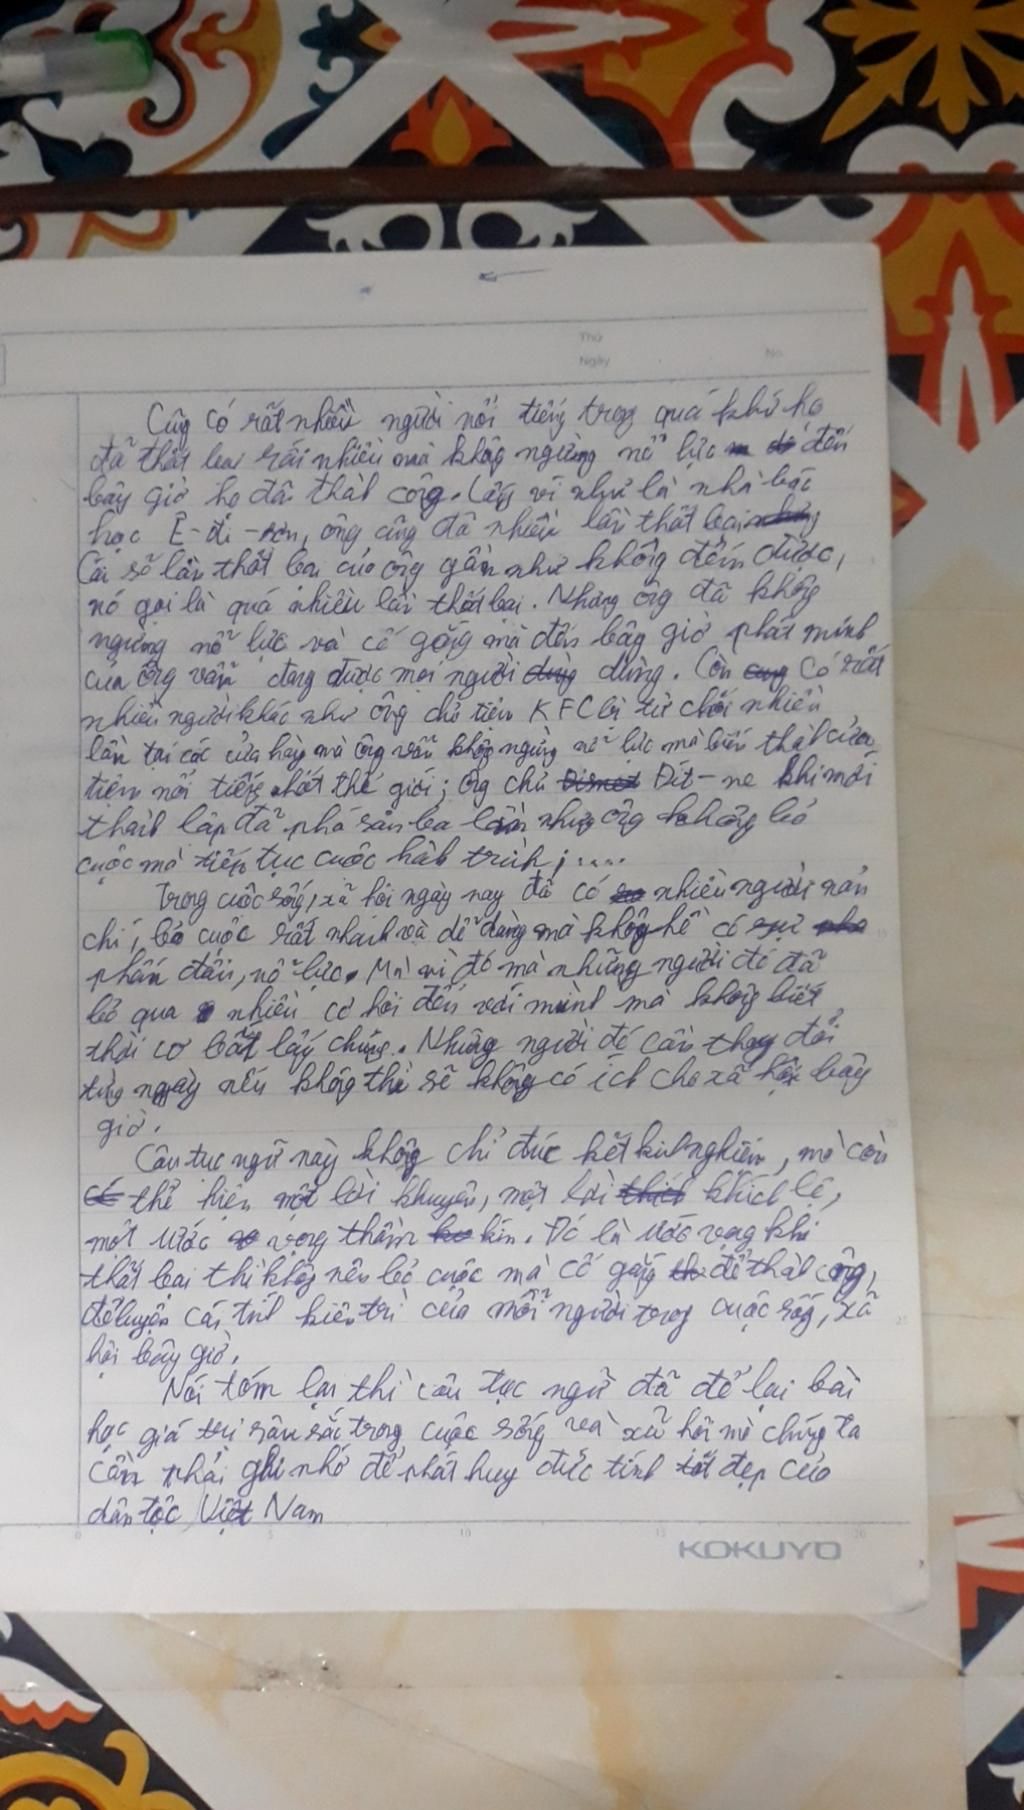 Thứ
Ngày
No.
Cũng có rất nhiều người nổi tiếng trong quá khứ họ
đã thất bại rất nhiều mà không ngừng nỗ lực đến
bây giờ họ đã thành công. Lấy ví như là nhà bác
học Ê-đi-sơn, ông cũng đã nhiều lần thất bại
Cái số lần thất bại của ông gần như không đếm được,
nó gọi là quá nhiều lần thất bại. Nhưng ông đã không
ngừng nỗ lực và cố gắng mà đến bây giờ phát minh
của ông vẫn đang được mọi người dùng. Còn có rất
nhiều người khác như ông chủ tiệm KFC bị từ chối nhiều
lần tại các cửa hàng mà ông vẫn không ngừng nỗ lực mà biến thành cửa
tiệm nổi tiếng nhất thế giới; ông chủ Đít-ne khi mới
thành lập đã phá sản ba lần nhưng ông không bỏ
cuộc mà tiếp tục cuộc hành trình;.....
Trong cuộc sống, xã hội ngày nay đã có nhiều người nản
chí, bỏ cuộc rất nhanh và dễ dàng mà không hề có sự
phấn đấu, nỗ lực. Mà vì đó mà những người đó đã
bỏ qua nhiều cơ hội đến với mình mà không biết
thời cơ bắt lấy chúng. Những người đó cần thay đổi
từng ngày nếu không thì sẽ không có ích cho xã hội bây
giờ.
Câu tục ngữ này không chỉ đúc kết kinh nghiệm, mà còn
thể hiện một lời khuyên, một lời khích lệ,
một ước vọng thầm kín. Đó là ước vọng khi
thất bại thì không nên bỏ cuộc mà cố gắng để thành công,
để luyện cái tính kiên trì của mỗi người trong cuộc sống, xã
hội bây giờ.
Nói tóm lại thì câu tục ngữ đã để lại bài
học giá trị sâu sắc trong cuộc sống và xã hội mà chúng ta
cần phải ghi nhớ để phát huy đức tính tốt đẹp của
dân tộc Việt Nam
0 5 10 15 20
KOKUYO